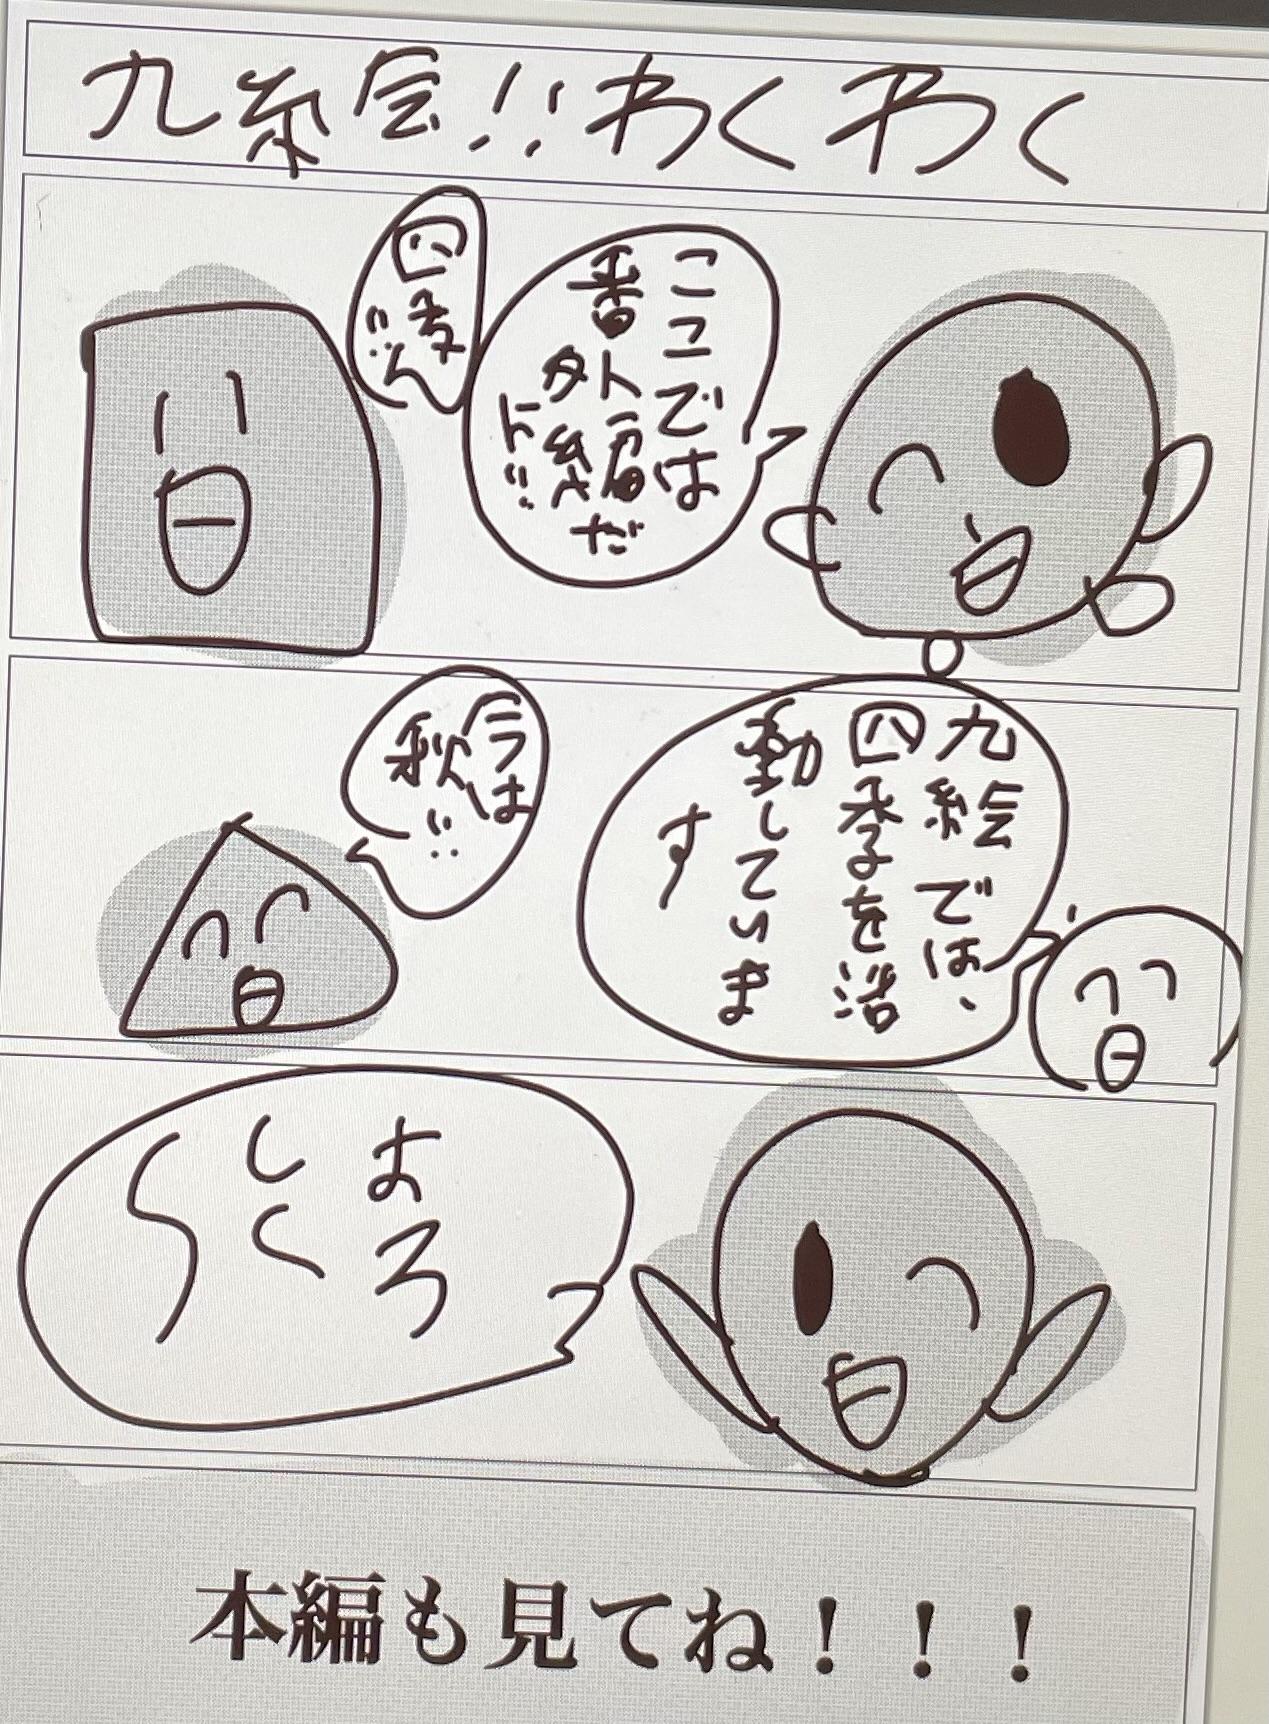 九糸会!!わくわく
ここでは
番外
だ
ト!!
今は
秋!!
九絵では、
四季を活
動していま
す
よろ
しく
〜
本編も見てね！！！